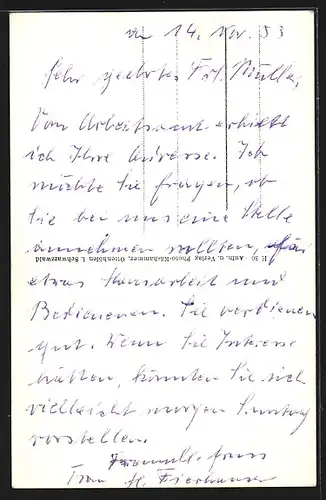 14. Nov. 53
Sehr geehrtes Frl. Müller,
Vom Arbeitsamt erhielt
ich Ihre Adresse. Ich
möchte Sie fragen, ob
Sie bei uns eine Stelle
annehmen wollten, für
etwas Hausarbeit und
Bedienen. Sie verdienen
gut. Wenn Sie Interesse
hätten, könnten Sie sich
vielleicht morgen Sonntag
vorstellen.
Frau H.
E 50 - Aufn. u. Verlag Photo-Killhammer, Ottenhöfen i. Schwarzwald